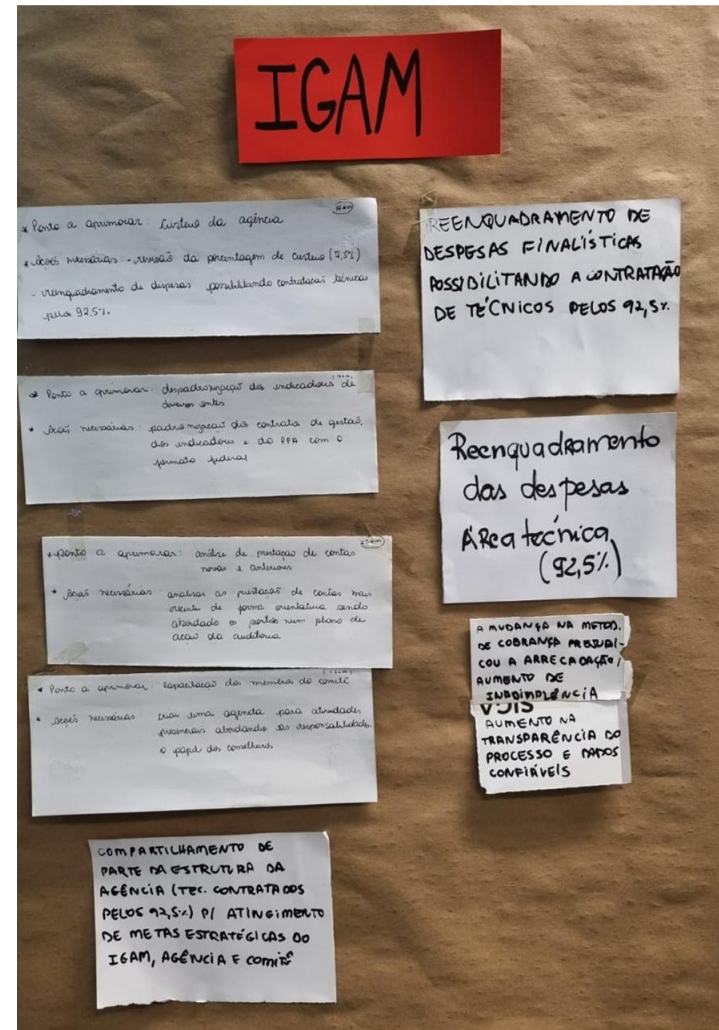 IGAM
* Ponto a aprimorar: Custeio da agência
* Ações necessárias - revisão da porcentagem de custeio (7,5%)
- reenquadramento de despesas possibilitando contratação técnicos
pelos 92,5%.
* Ponto a aprimorar: despadronização dos indicadores de
diversos entes
* Ações necessárias: padronização dos contratos de gestão,
dos indicadores e do PPA com o
formato federal
* Ponto a aprimorar: análise de prestação de contas
novas e anteriores
* Ações necessárias analisar as prestação de contas mais
recente de forma orientativa sendo
abordado os pontos num plano de
ação da auditoria
* Ponto a aprimorar: capacitação dos membros do comitê
* Ações necessárias: criar uma agenda para atividades
presenciais abordando as responsabilidades,
o papel dos conselheiros
COMPARTILHAMENTO DE
PARTE DA ESTRUTURA DA
AGÊNCIA (TEC. CONTRATADOS
PELOS 92,5%) P/ ATINGIMENTO
DE METAS ESTRATÉGICAS DO
IGAM, AGÊNCIA E COMITÊ
REENQUADRAMENTO DE
DESPESAS FINALÍSTICAS
POSSIBILITANDO A CONTRATAÇÃO
DE TÉCNICOS PELOS 92,5%.
Reenquadramento
das despesas
Área técnica
(92,5%)
A MUDANÇA NA METOD.
DE COBRANÇA PREJUDI-
COU A ARRECADAÇÃO/
AUMENTO DE
INADIMPLÊNCIA
AUMENTO NA
TRANSPARÊNCIA DO
PROCESSO E DADOS
CONFIÁVEIS